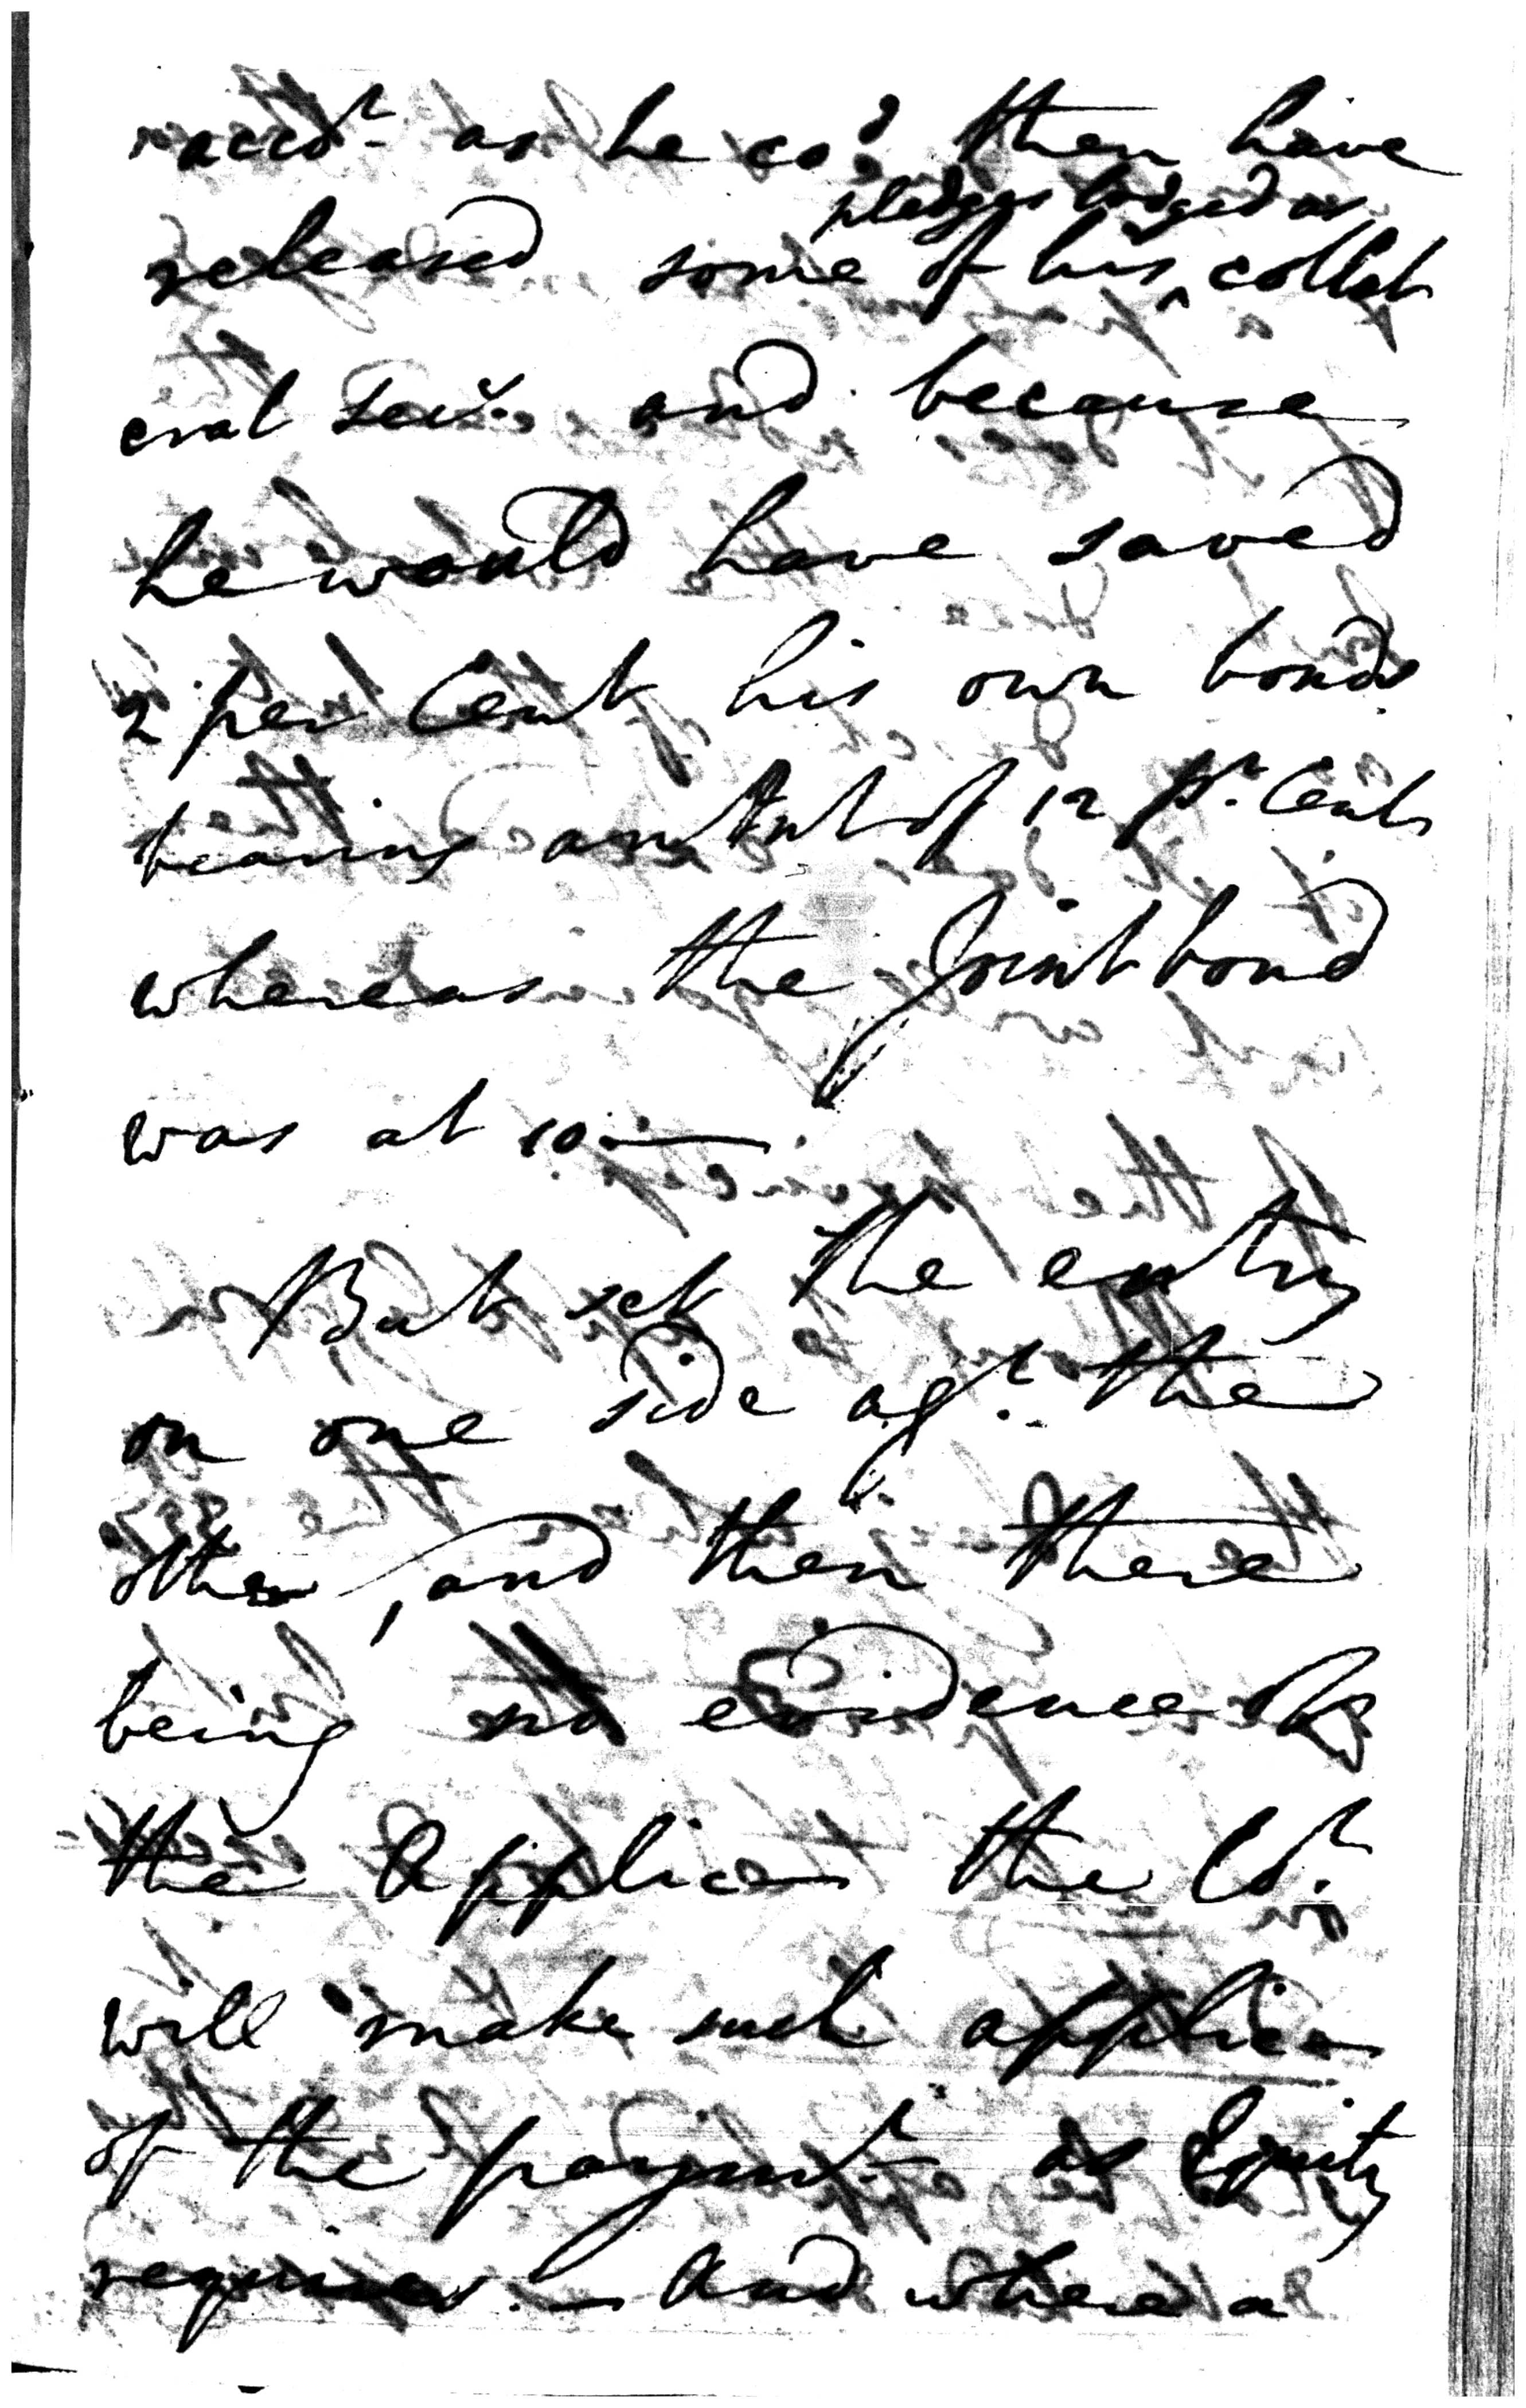 acco^t. as he co^d then have
pledges lodged as
released some of his ^ collat
eral Secy. and because
he would have saved
2 per Cent his own bonds
bearing an Int of 12 p^r. Cent
whereas the Joint bond
was at 10.—
But set the entry
on one side ag^t. the
other, and then there
being no evidence of
the Applicn the C^t.
will make such applicn
of the paym^t. as Equity
requires. — And where a